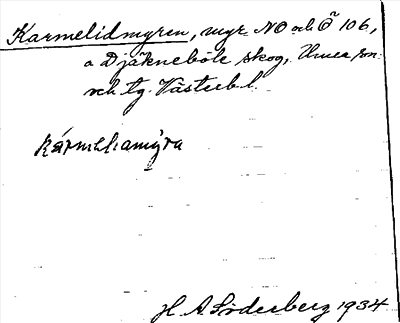 Karmelidmyren, myr NO och Ö 106,
a Djäkneböle skog, Umeå sn.
och tg. Västerb. l.
karmeliamyra
H. A. Söderberg 1934